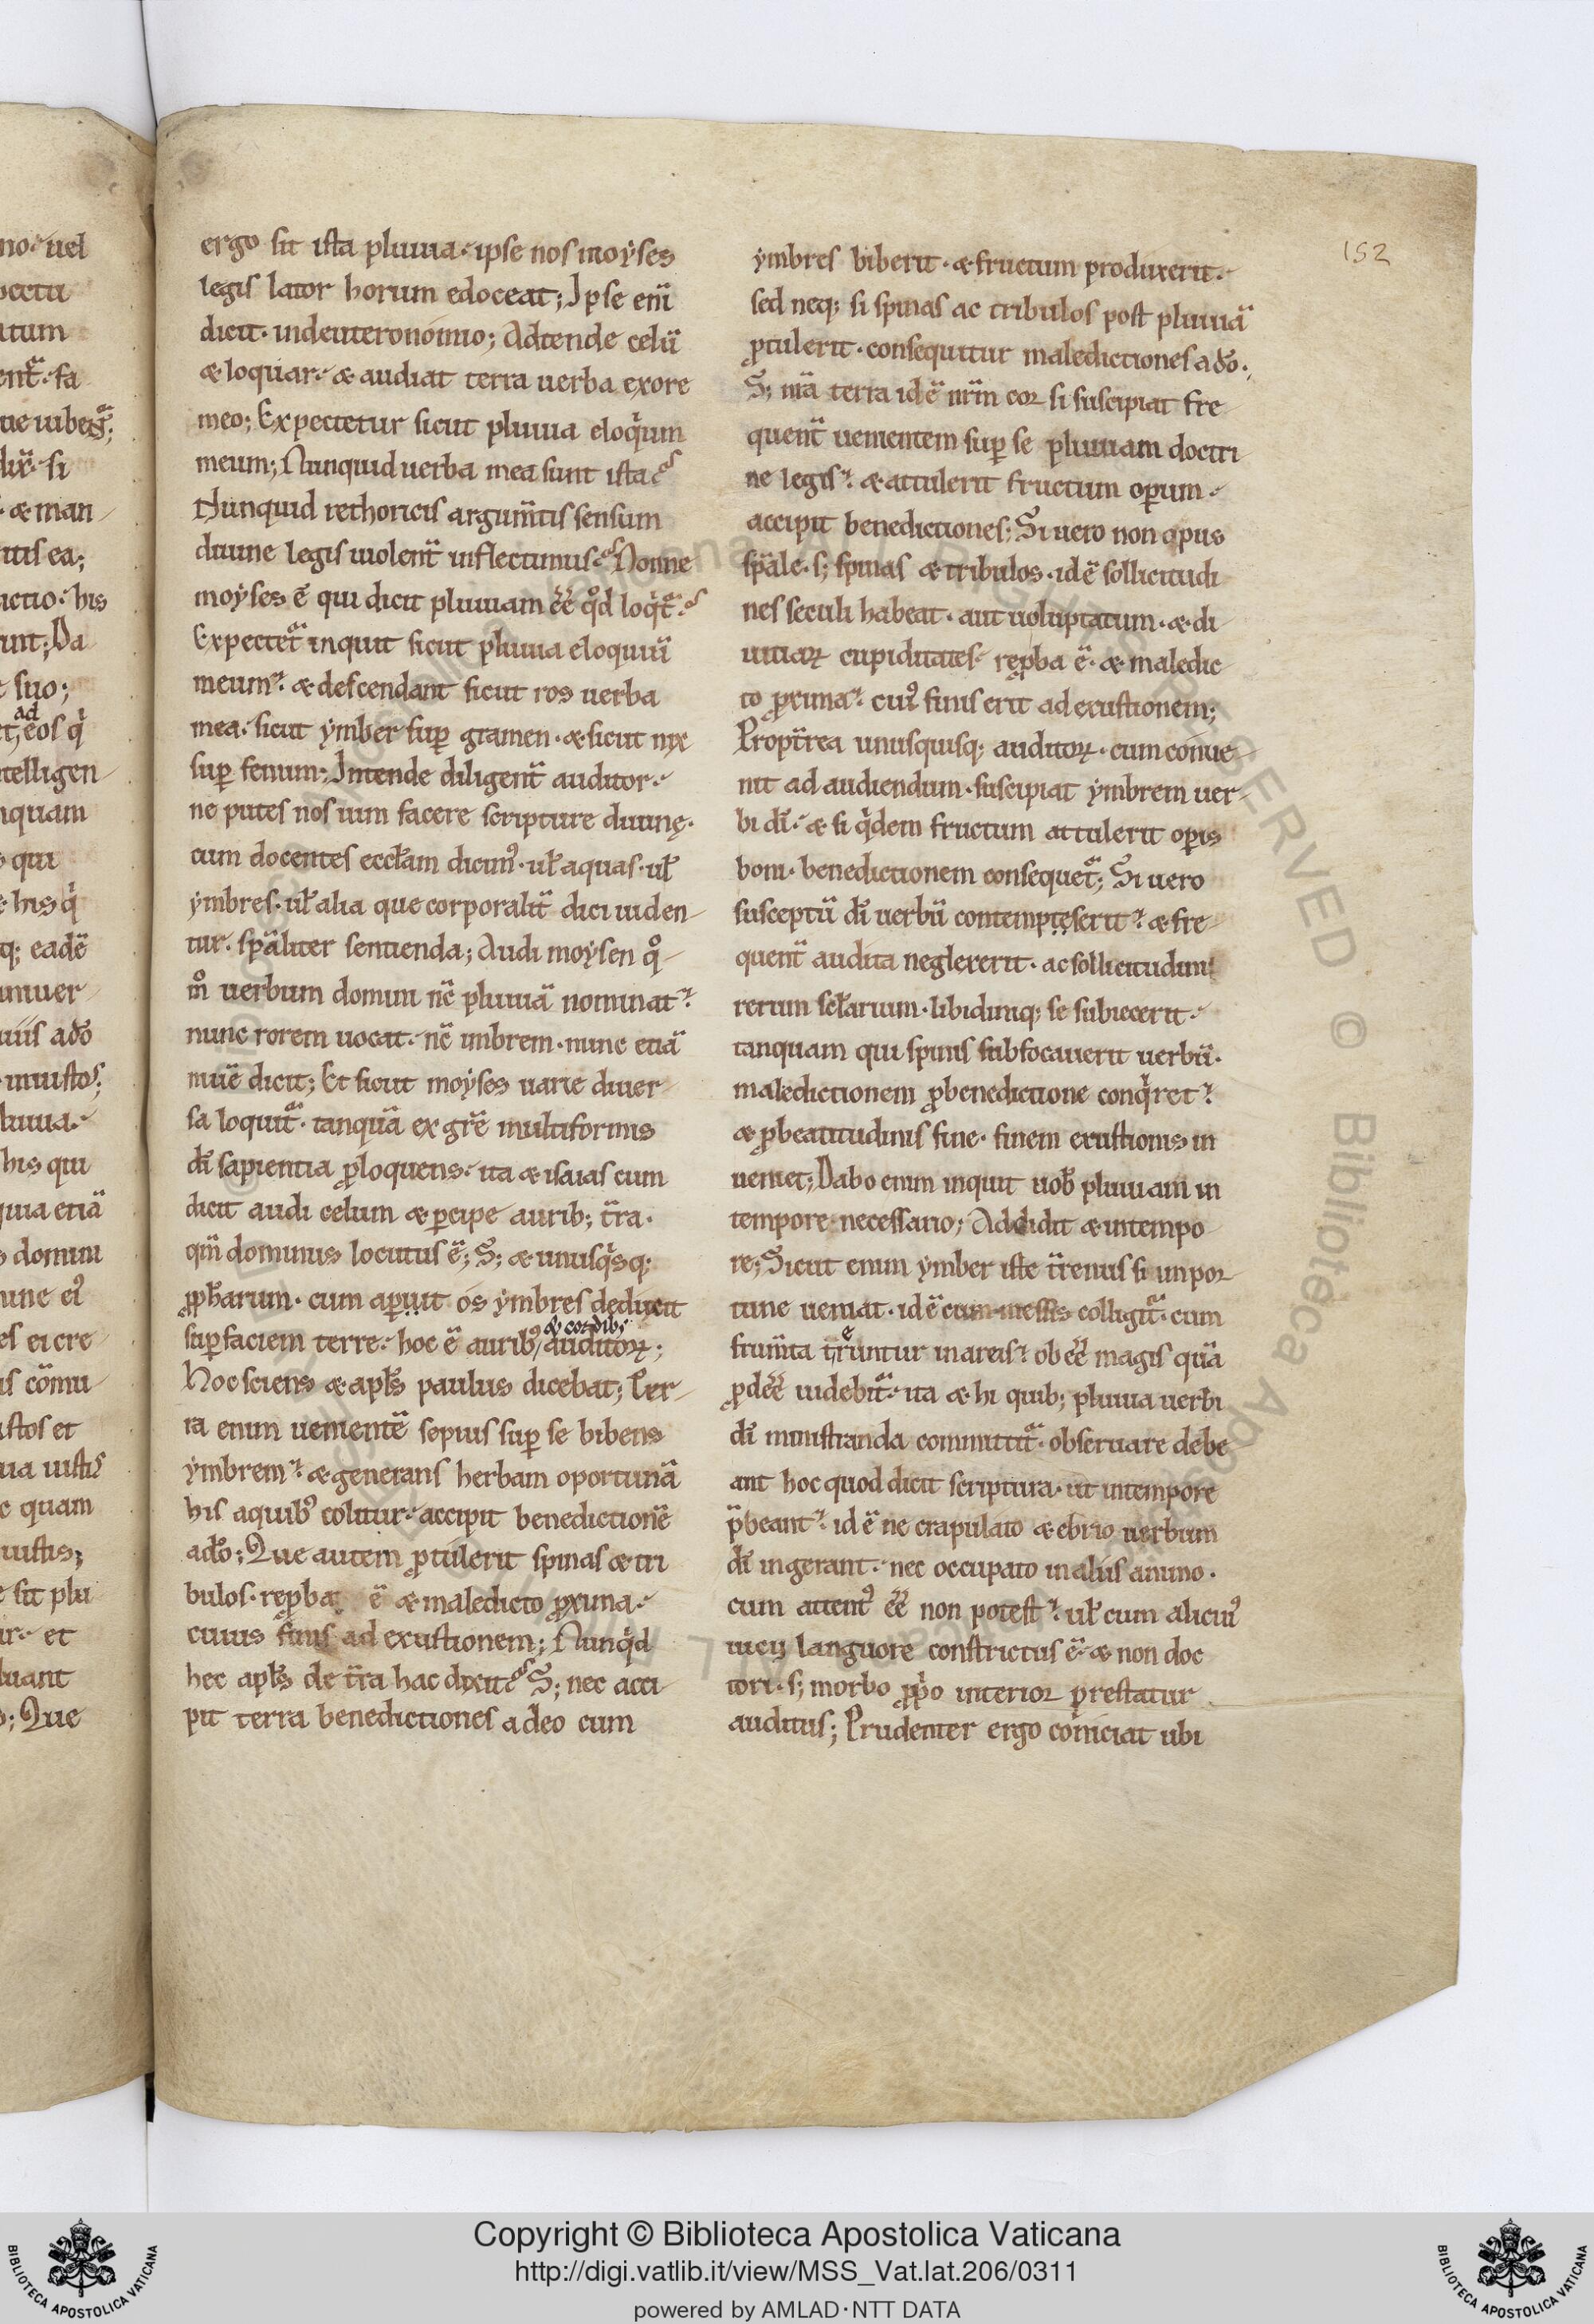 152
ergo sit ista pluuia· ipse nos moyses
legis lator horum edoceat; Ipse enı̄
dicit· indeuteronomio; Adtende celū
& loquar· & audiat terra uerba exore
meo; Expectetur sicut pluuia eloq̇um
meum; Nunquid uerba mea sunt ista?
Nunquid rethoricis argum̄tis sensum
diuine legis uiolent̄ inflectimus? Nonne
moyses ē qui dicit pluuiam ēē qd̊ loq̇t̄?
Expectet̄ inquit sicut pluuia eloquiū
meum· & descendant sicut ros uerba
mea· sicut ymber sup̱ gramen· & sicut nix
sup̱ fenum; Intende diligent̄ auditor·
ne putes nos uim facere scripture diuinę·
cum docentes eccł̄am dicim᾽· ul̄ aquas· ul̄
ymbres· ul̄ alia que corporalit̄ dici uiden-
tur· sp̄aliter sentienda; Audi moysen q̊-
m̊ uerbum domini nc̄ pluuiā nominat·
nunc rorem uocat· nc̄ imbrem· nunc etiā
niuē dicit; Et sicut moyses uarie diuer-
sa loquit̄· tanquā ex gr̄e multiformis
dı̄ sapientia ꝓloquens· ita & isaias cum
dicit audi celum & ꝑcipe aurib; t̄ra·
qm̄ dominus locutus ē; S; & unusq̇sq;
ꝓph̄arum· cum aꝑuit os ymbres deducit
& cordib;
sup̱ faciem terre· hoc ē aurib᾽ auditoꝝ;
Hoc sciens & apl̄s paulus dicebat; Ter-
ra enim uementē sepius sup̱ se bibens
ymbrem· & generans herbam oportunā
his aquib᾽ colitur· accipit benedictionē
ado̅; Que autem ꝓtulerit spinas & tri
bulos· reꝓba ē & maledicto ꝓxima·
cuius finis ad exustionem; Nunq̇d
hec apl̄s de t̄ra hac dixit? S; nec acci-
pit terra benedictiones adeo cum
ymbres biberit· & fructum produxerit·
sed neq; si spinas ac tribulos post pluuiā
ꝓtulerit· consequitur maledictiones ado̅·
S; nr̄a terra id ē nr̄m cor si suscipiat fre
quent̄ uementem sup̱ se pluuiam doctri
ne legis· & attulerit fructum oꝑum·
accipit benedictiones; Si uero non opus
sp̄ale· s; spinas & tribulos· id ē sollicitudi
nes seculi habeat· aut uoluptatum· & di
uitiaꝝ cupiditates· reꝓba ē· & maledic
to ꝓxima· cui᾽ finis erit ad exustionem;
Propt̄rea unusquisq; auditoꝝ· cum conue-
nit ad audiendum· suscipiat ymbrem uer-
bi dı̄· & si q̇dem fructum attulerit oꝑis
boni· benedictionem consequet̄; Si uero
susceptū dı̄ uerbū contempteserit· & fre-
quent̄ audita neglexerit· ac sollicitudini
rerum scl̄arium· libidiniq; se subiecerit·
tanquam qui spinis subfocauerit uerbū·
maledictionem ꝓbenedictione conq̇ret·
& ꝓbeatitudinis fine· finem exustionis in
ueniet; Dabo enim inquit uob̄ pluuiam in
tempore necessario; Addidit & intempo
re; Sicut enim ymber iste t̄renus si inpor
tune ueniat· id ē cum messis colligit̄· cum
frum̄ta teruntur inareis· ob ēē magis quā
ꝓdēē uidebit̄· ita & hi quib; pluuia uerbi
dı̄ ministranda committit̄· obseruare debe
ant hoc quod dicit scriptura· ut intempore
p̄beant· id ē ne crapulato & ebrio uerbum
dı̄ ingerant· nec occupato inaliis animo·
cum attent᾽ ēē non potest· ul̄ cum alicui᾽
uicij languore constrictus ē· & non doc
tori· s; morbo ꝓṗo interior prestatur
auditus; Prudenter ergo coniciat ubi
Copyright © Biblioteca Apostolica Vaticana
http://digi.vatlib.it/view/MSS_Vat.lat.206/0311
powered by AMLAD·NTT DATA